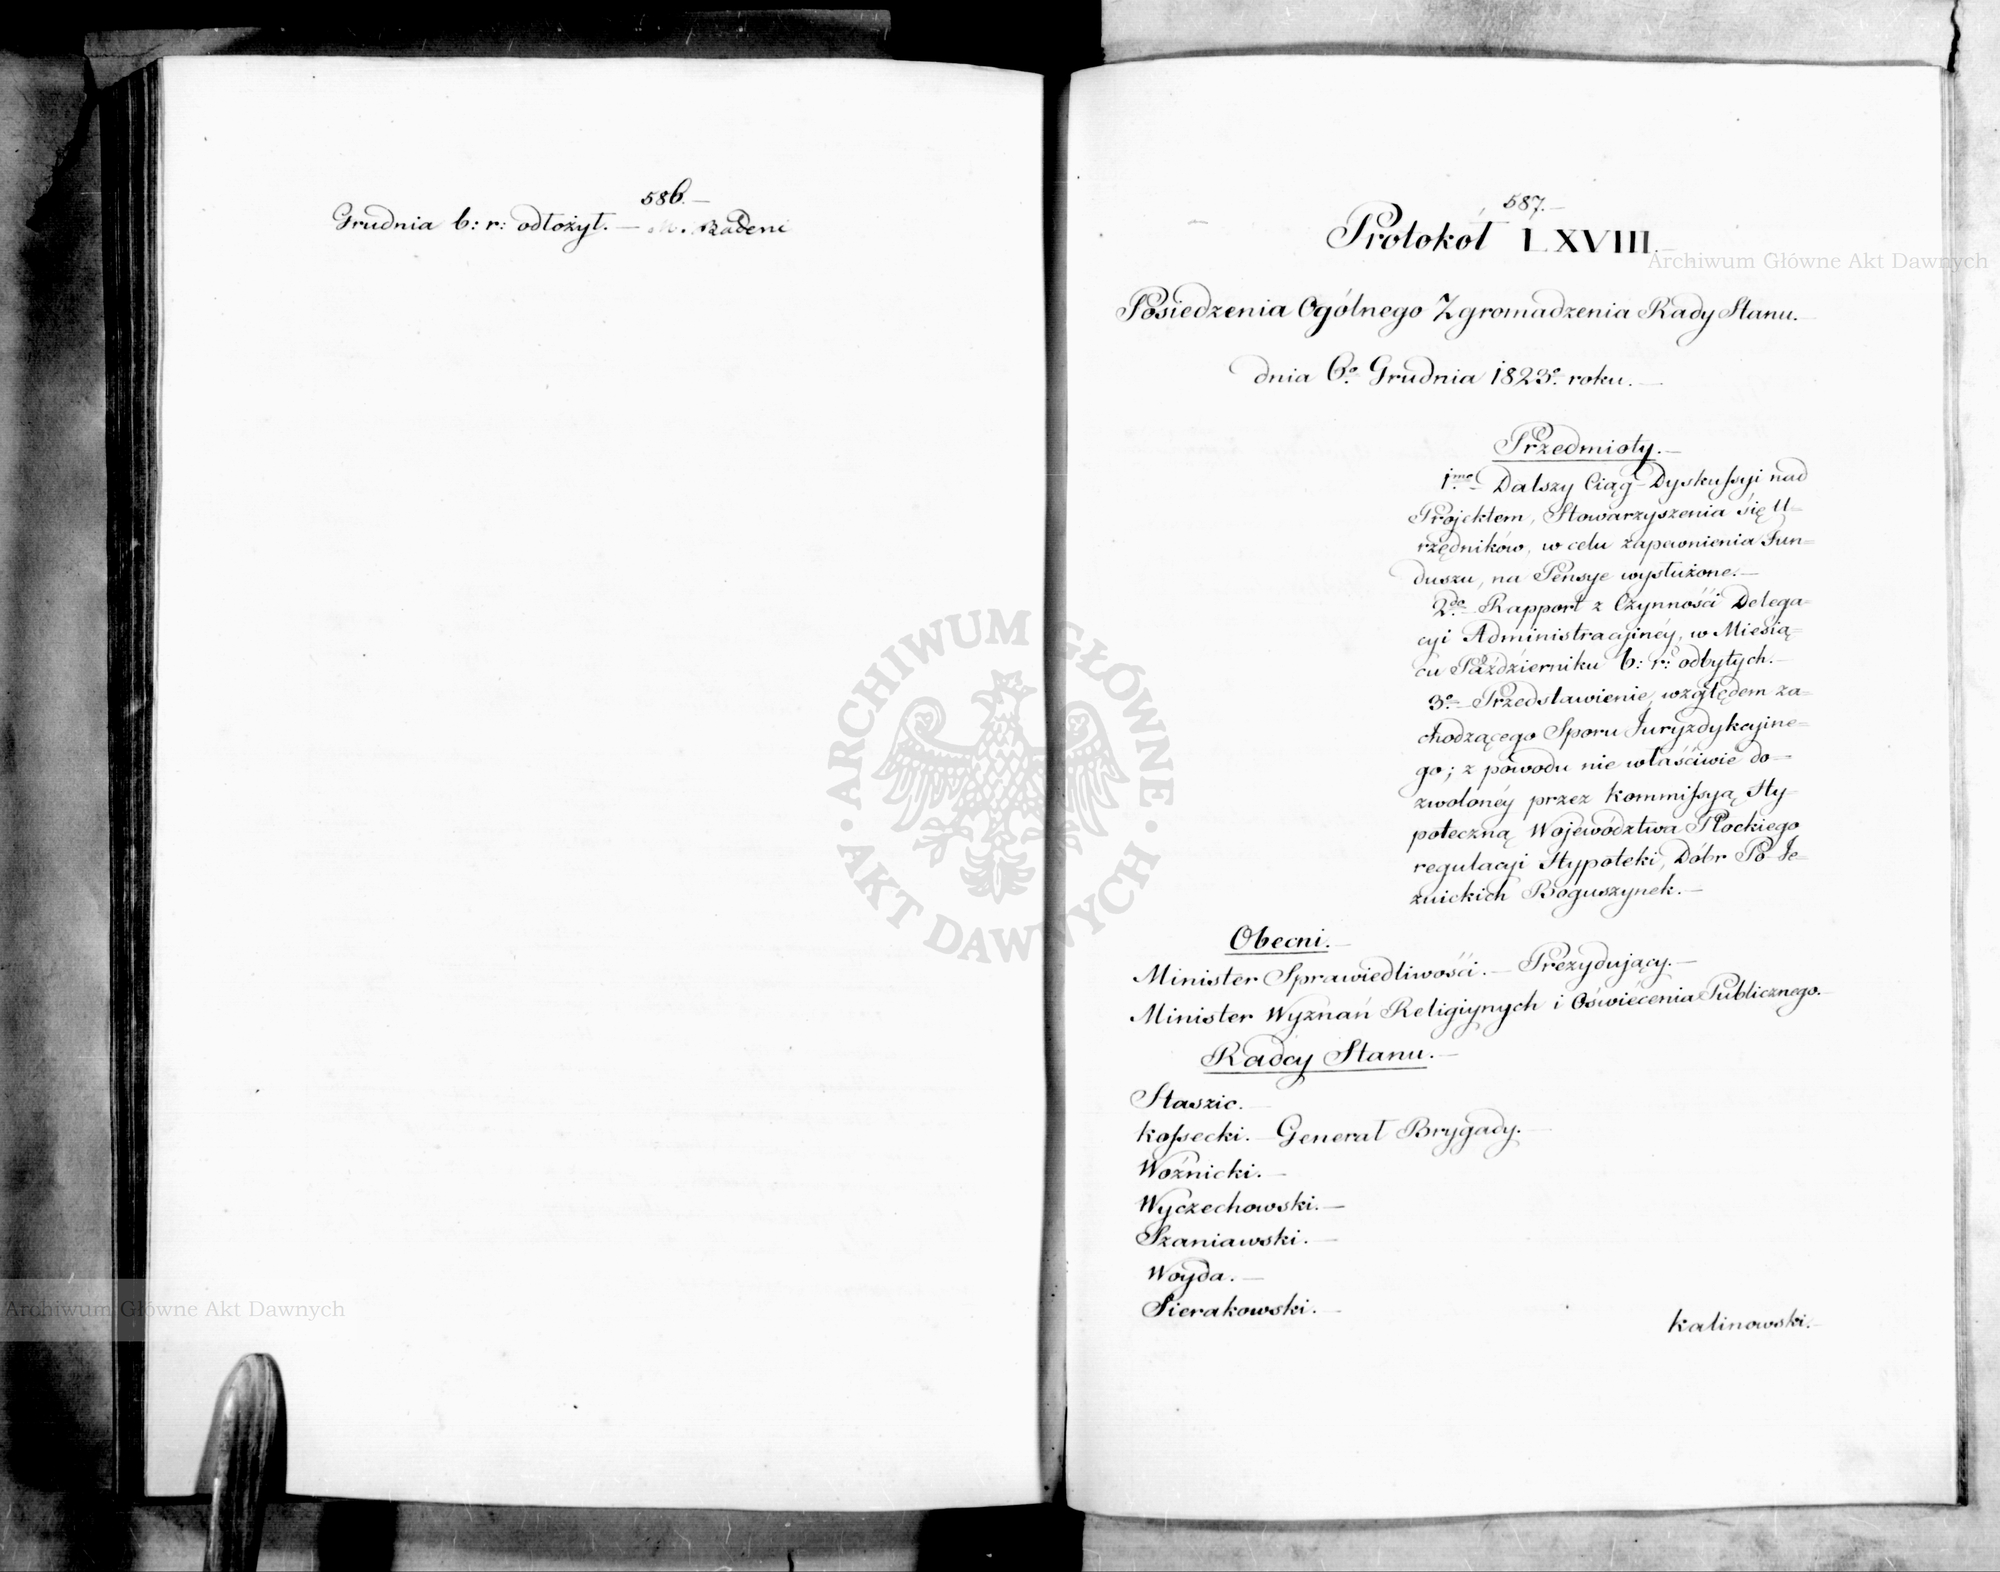 586.—
Grudnia b: r: odłożył. — M. Badeni
587.—
Protokół LXVIII.—
Posiedzenia Ogólnego Zgromadzenia Rady Stanu.—
dnia 6º Grudnia 1823º roku.—
Przedmioty.—
1mo Dalszy Ciąg Dyskussyi nad
Projektem, Stowarzyszenia się U=
rzędników, w celu zapewnienia Fun=
duszu, na Pensye wysłużone.—
2do Rapport z Czynności Delega=
cyi Administracyinéy, w Miesią=
cu Październiku b: r: odbytych.—
3º Przedstawienie, względem za=
chodzącego Sporu Juryzdykcyine=
go; z powodu nie właściwie do=
zwolonéy przez Kommissyą Hy=
poteczną Województwa Płockiego
regulacyi Hypoteki, Dóbr Po-Je=
zuickich Boguszynek.—
Obecni.—
Minister Sprawiedliwości.— Prezydujący.—
Minister Wyznań Religiynych i Oświecenia Publicznego.—
Radcy Stanu.—
Staszic.
Kossecki.— Generał Brygady.—
Woźnicki.—
Wyczechowski.—
Szaniawski.—
Woyda.—
Sierakowski.—
Kalinowski.—
Archiwum Główne Akt Dawnych
ARCHIWUM GŁÓWNE
AKT DAWNYCH
Archiwum Główne Akt Dawnych